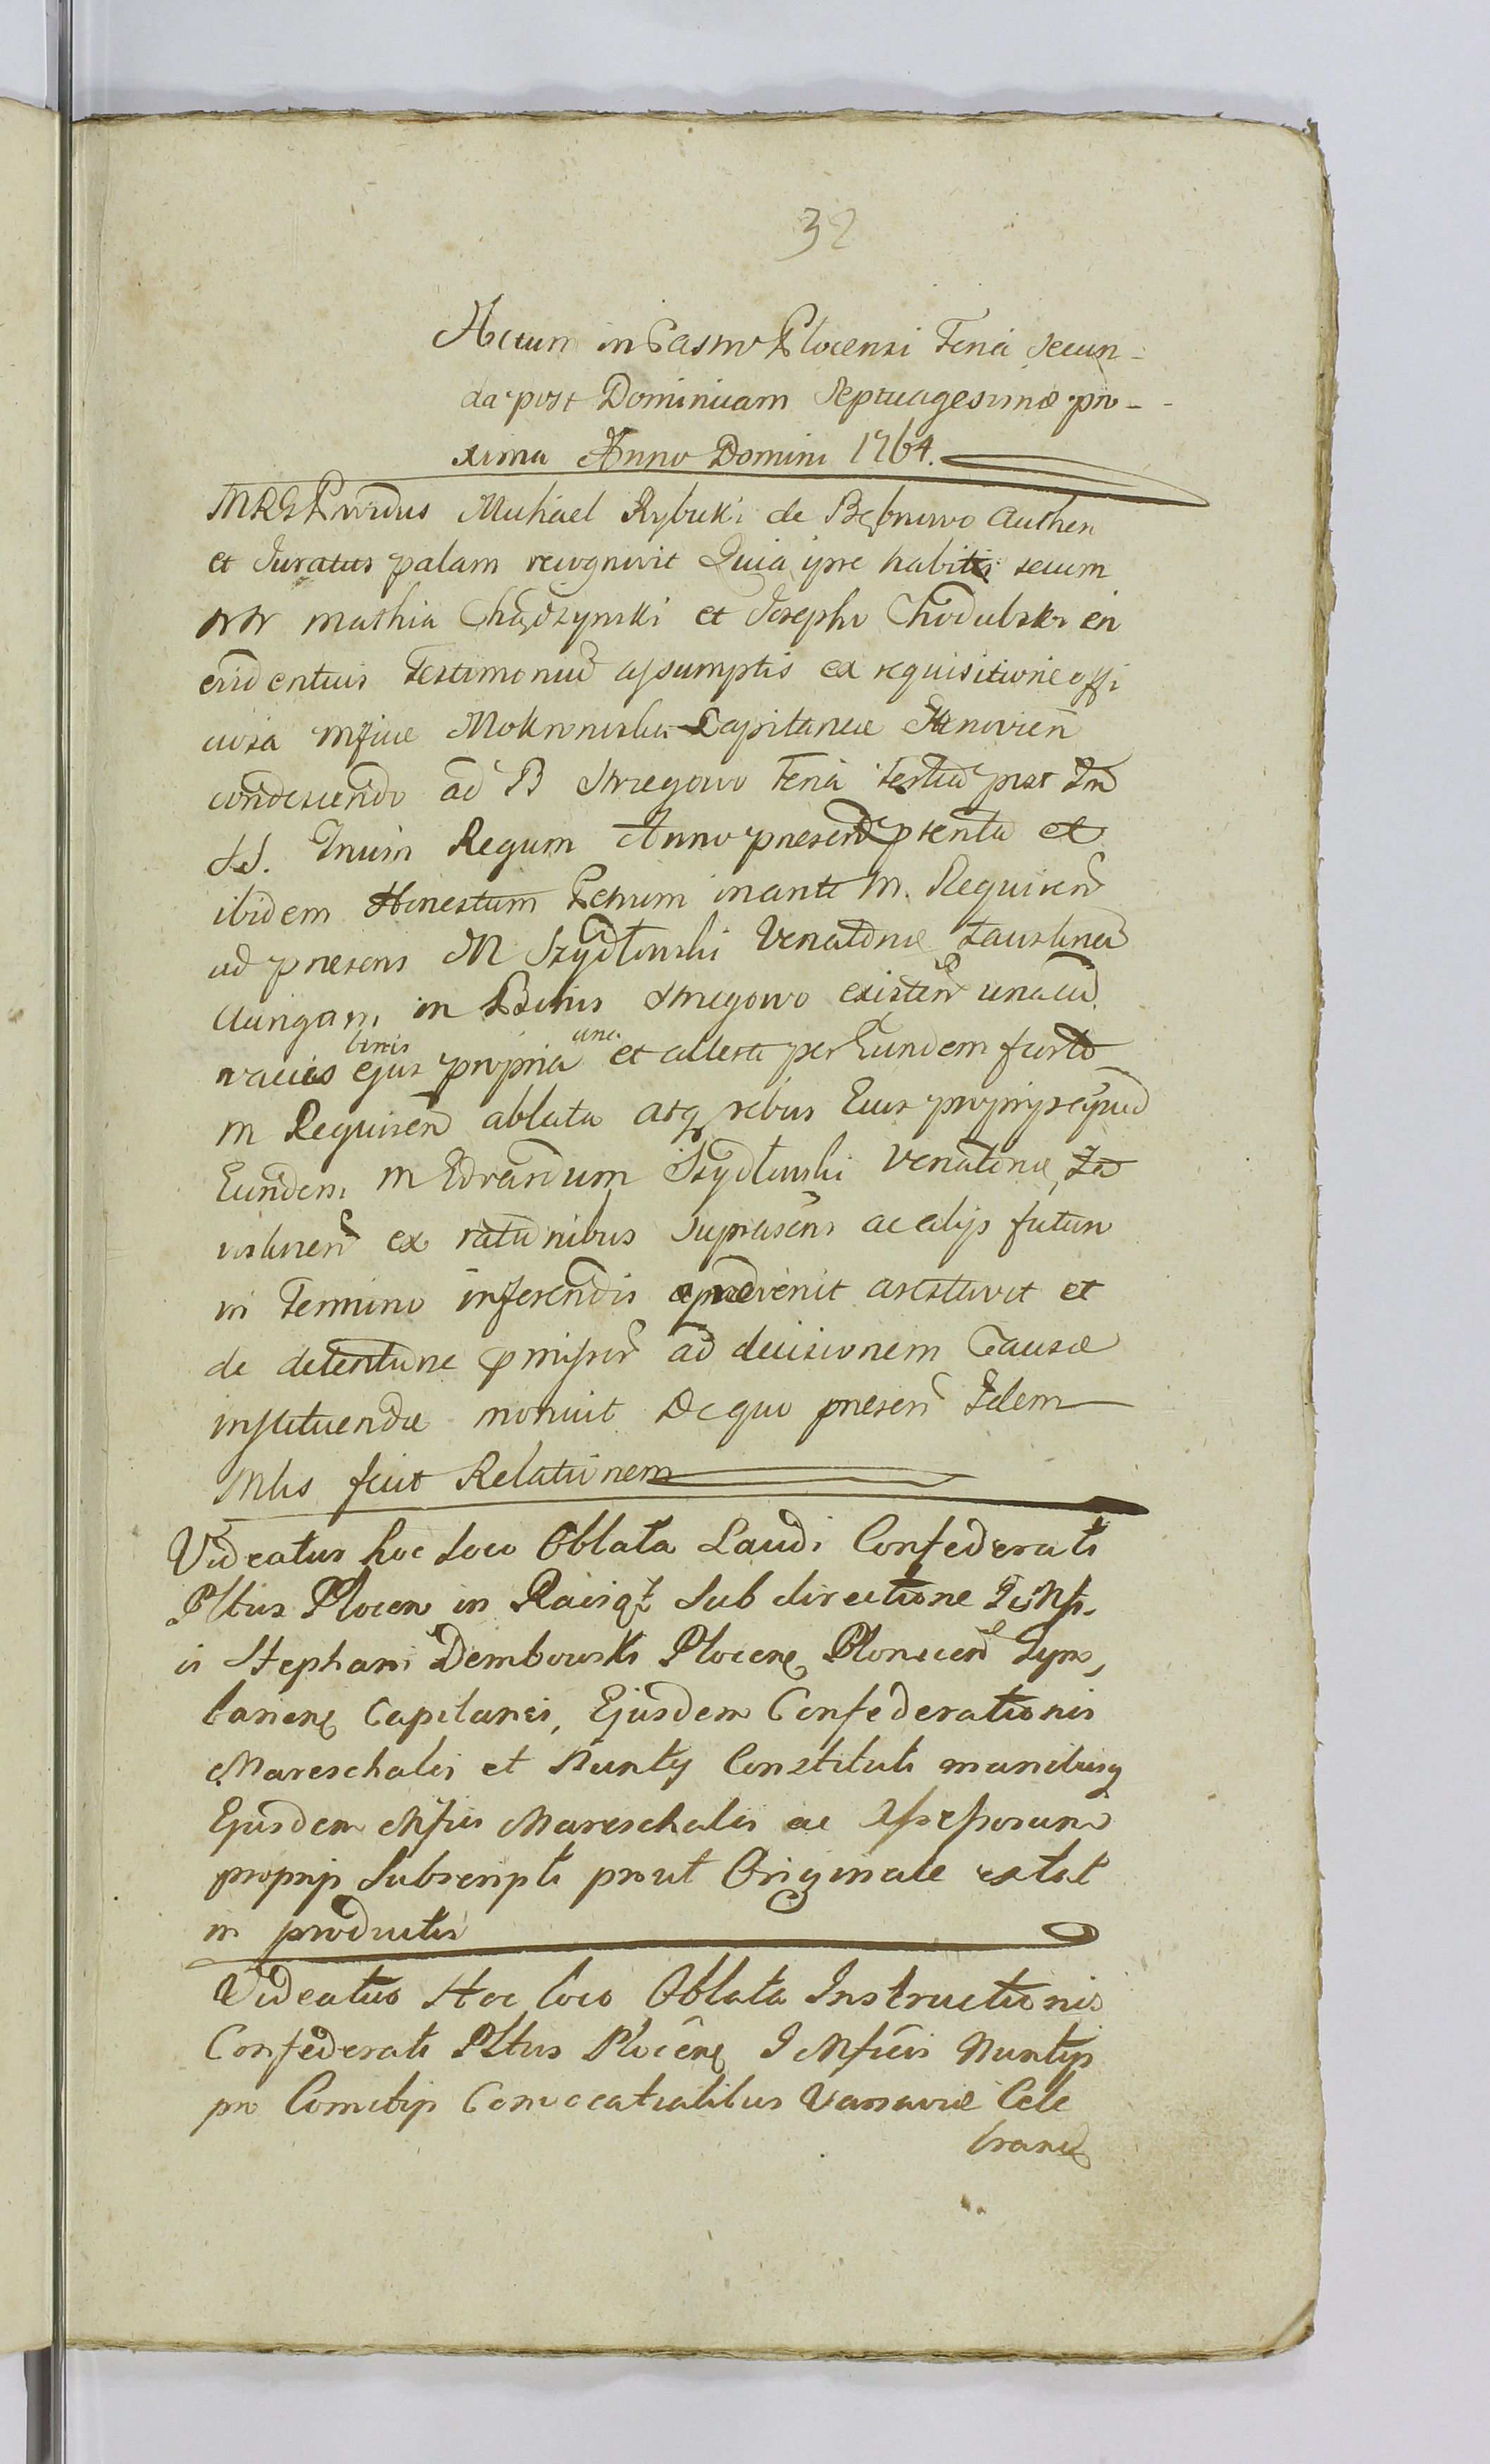 32
Actum in Castro Plocensi Feria secun-
da post Dominicam Septuagesimæ pro-
xima Anno Domini 1764.
MRGl Providus Michael Rybicki de Bębnowo Authen
et Juratus palam recognovit Quia ipse habitis secum
NN Mathia Chądzynski et Josepho Chodubski in
evidentius Testimoniu assumptis ex requisitione offi
ciosa Mficæ Mokronoska Capitaneæ Janovien
condescendo ad B Stregowo Feria Tertia post Fm
SS. Trium Regum Anno presen
ibidem Honestum Petrum in ante M. Requisen
ad presens M Szydłowski Venatoris
Aurigam in Bonis Stregowo existen unacu
vaccis binis ejus propria una et altera per Eundem furto
M Requisen ablata atq rebus Ejus proprijs apud
Eundem M Edvardum Szydłowski Venatoris
ex rationibus suprascris ac alijs futuro
in Termino inferendis arestavit et
de detentione pmissor ad decisionem Causæ
instituendæ monuit De quo presen Idem
Mlis fecit Relationem
Videatur hoc loco Oblata Laudi Confederati
Pltus Plocen in Raciąż Sub directione
is Stephani Dembowski Plocen Plonscen
Capitanei, Ejusdem Confederationis
Mareschalis et Nuntij Constituti manibusq
Ejusdem Mfici Mareschalis ac Assessorum
proprijs Subscripti prout Originale extat
in productis
Videatur Hoc loco Oblata Instructionis
Confederati Pltus Plocen I Mficis Nuntijs
pro Comitijs Convocationalibus Varsaviæ Cele
bran